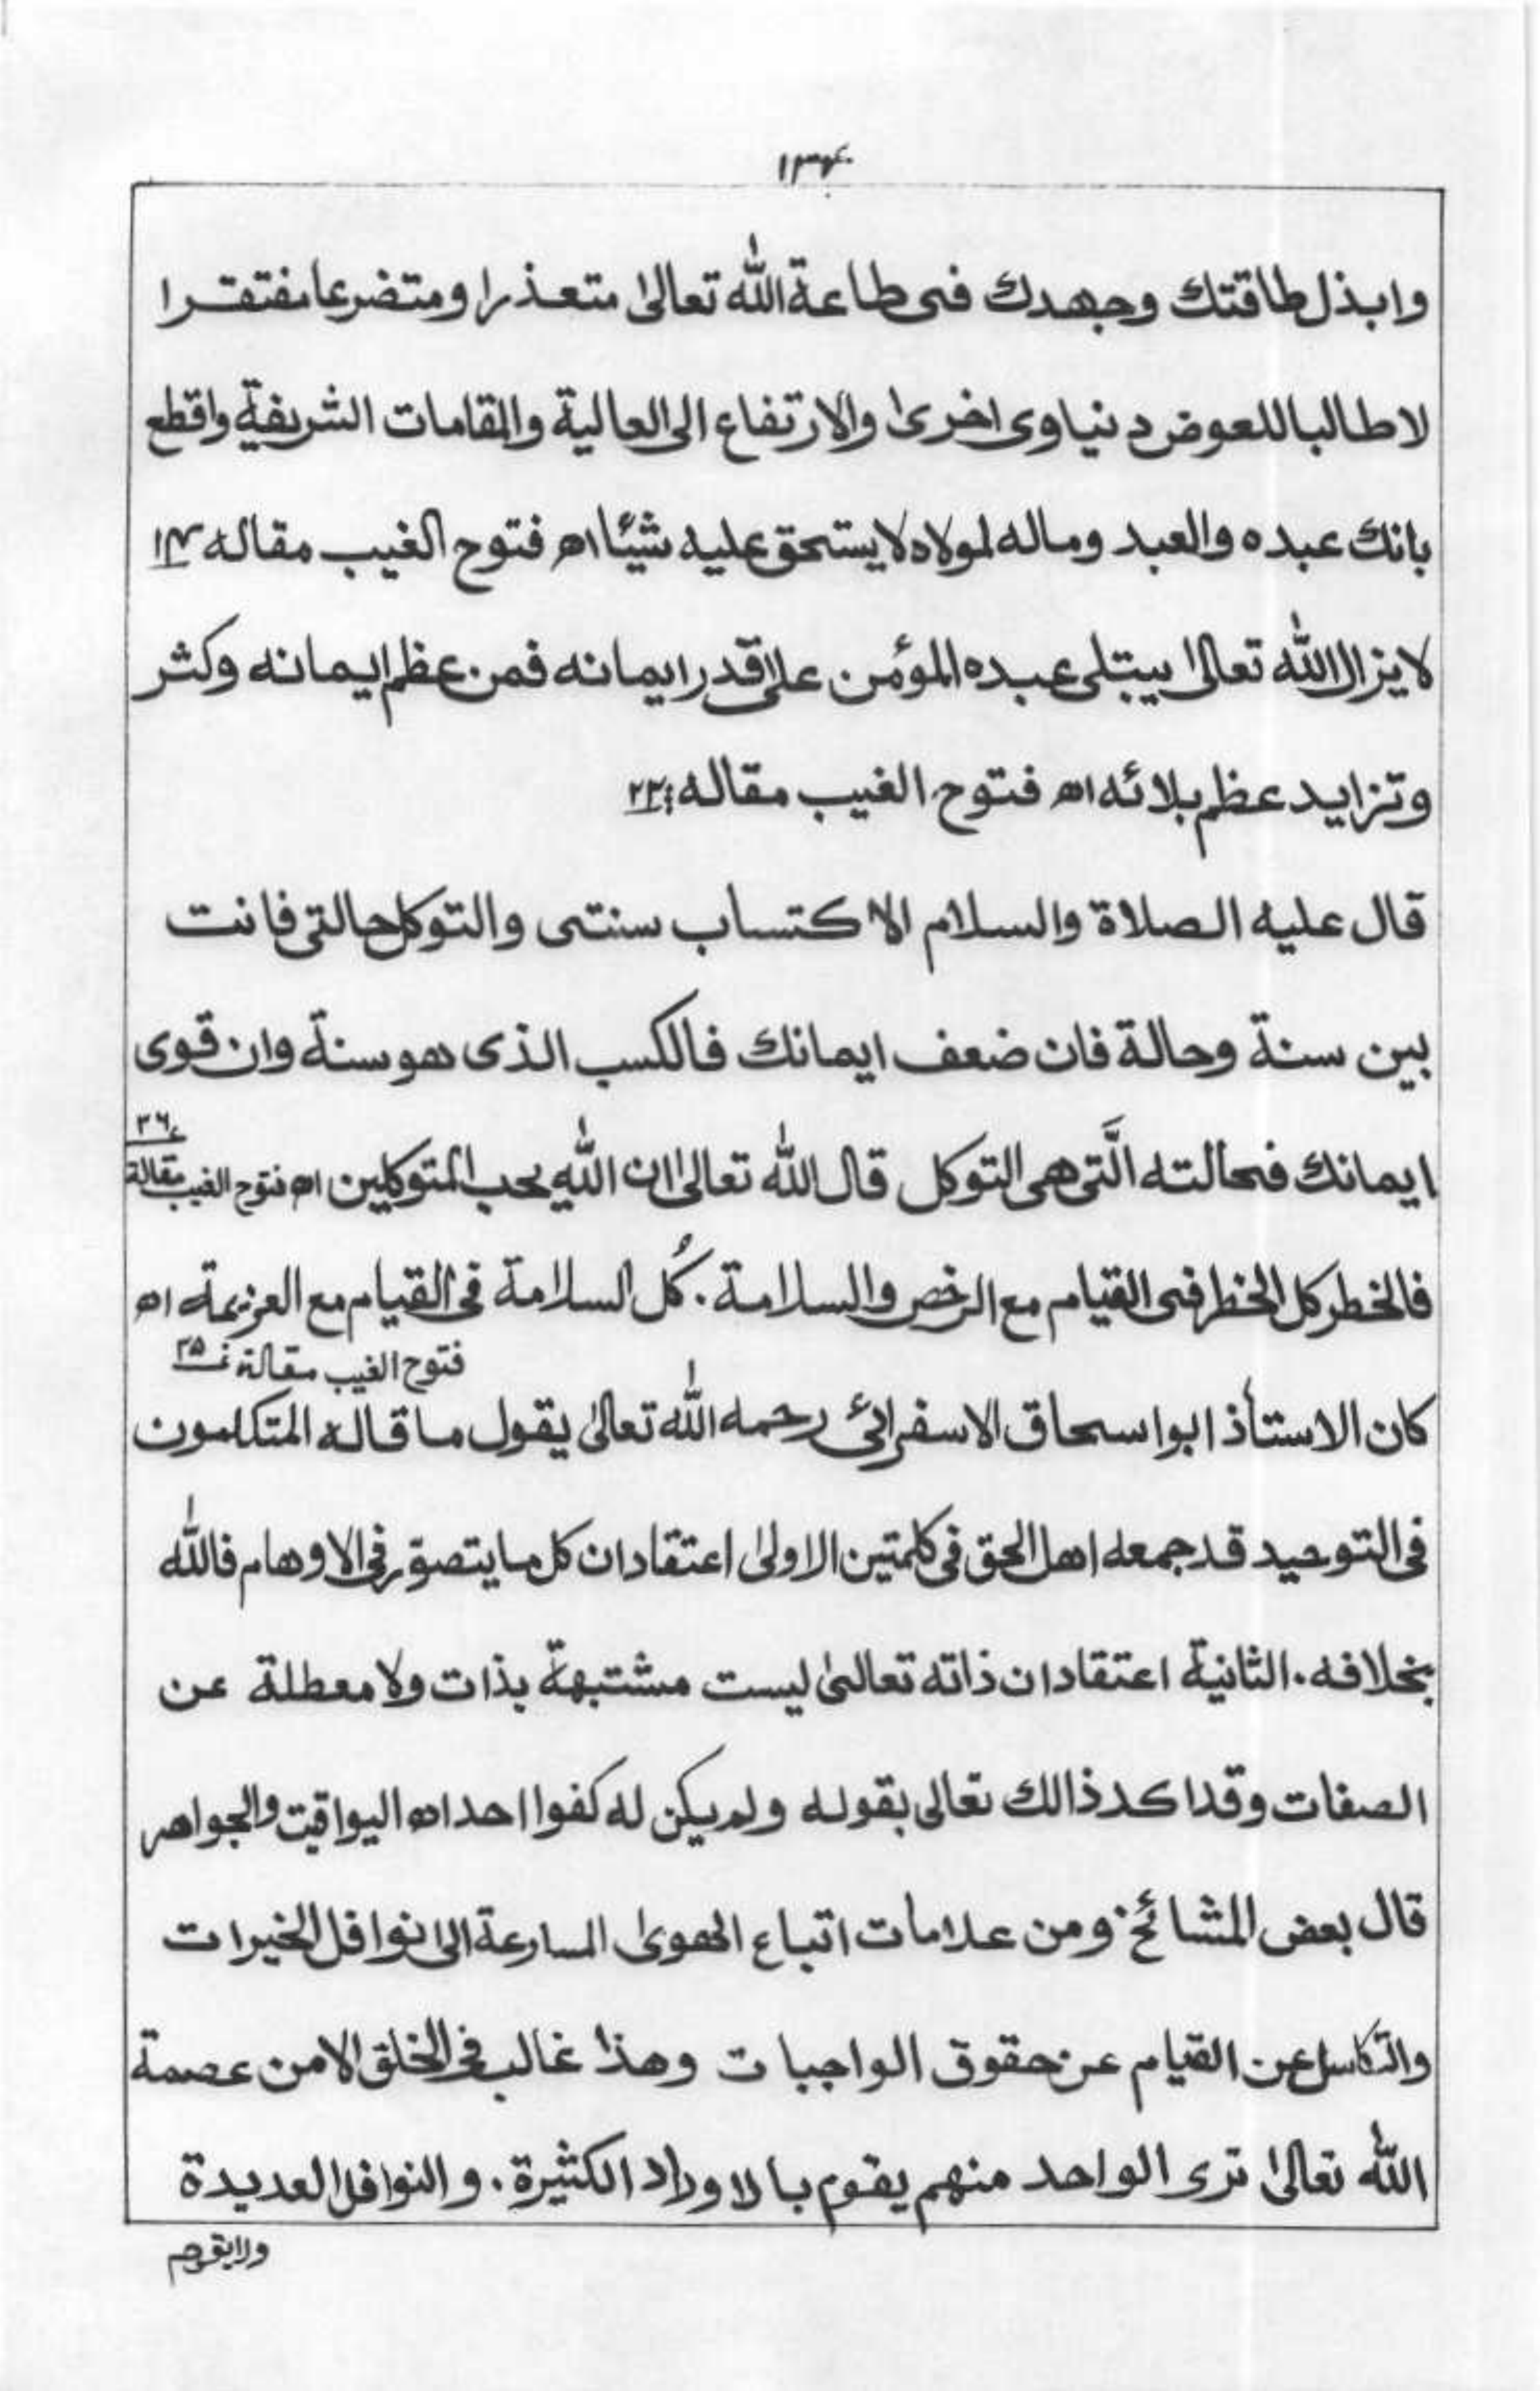 وابذل طاقتك وجهدك فى طاعة الله تعالىٰ متعذرا ومتضرعا مفتقرا
لا طالبا للعوض دنياوى اخرىٰ والارتفاع الى العالية والمقامات الشريفية واقطع
بانك عبده والعبد وماله لمولاه لا يستحق عليه شيئا اه فتوح الغيب مقاله
لا يزال الله تعالىٰ يبتلى عبده المؤمن علىٰ قدر ايمانه فمن عظم ايمانه وكثر
وتزايد عظم بلائه اه فتوح الغيب مقاله ٢٢
قال عليه الصلاة والسلام الاكتساب سنتى والتوكل حالتى فانت
بين سنة وحالة فان ضعف ايمانك فالكسب الذى هو سنة وان قوى
٣٦
ايمانك فحالته الَّتى هى التوكل قال الله تعالىٰ ان الله يحب المتوكلين اه فتوح الغيب مقالة
فالخطر كل الخطر فى القيام مع الرخص والسلامة. كُل السلامة فى القيام مع العزيمة اه
فتوح الغيب مقالة ٣٥
كان الاستأذ ابو اسحاق الاسفرائى رحمه الله تعالىٰ يقول ما قاله المتكلمون
فى التوحيد قد جمعه اهل الحق فى كلمتين الاولىٰ اعتقاد ان كل ما يتصوّر فى الاوهام فالله
بخلافه. الثانية اعتقاد ان ذاته تعالىٰ ليست مشتبهة بذات ولا معطلة عن
الصفات وقد اكد ذالك تعالى بقوله ولم يكن له كفوا احد اه اليواقيت والجواهر
قال بعض المشائخ ومن علامات اتباع الهوىٰ المسارعة الىٰ نوافل الخيرات
والتكاسل عن القيام عن حقوق الواجبات وهذا غالب فى الخلق الا من عصمة
الله تعالىٰ ترى الواحد منهم يقوم بالاوراد الكثيرة. والنوافل العديدة
ولا يقوم